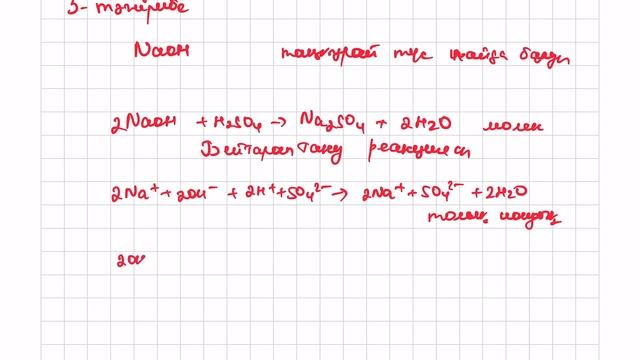 3- тәжірибе
NaOH таңқурай түс пайда болды
2NaOH + H₂SO₄ → Na₂SO₄ + 2H₂O молек
Бейтараптану реакциясы
2Na⁺ + 2OH⁻ + 2H⁺ + SO₄²⁻ → 2Na⁺ + SO₄²⁻ + 2H₂O
толық иондық
2OH